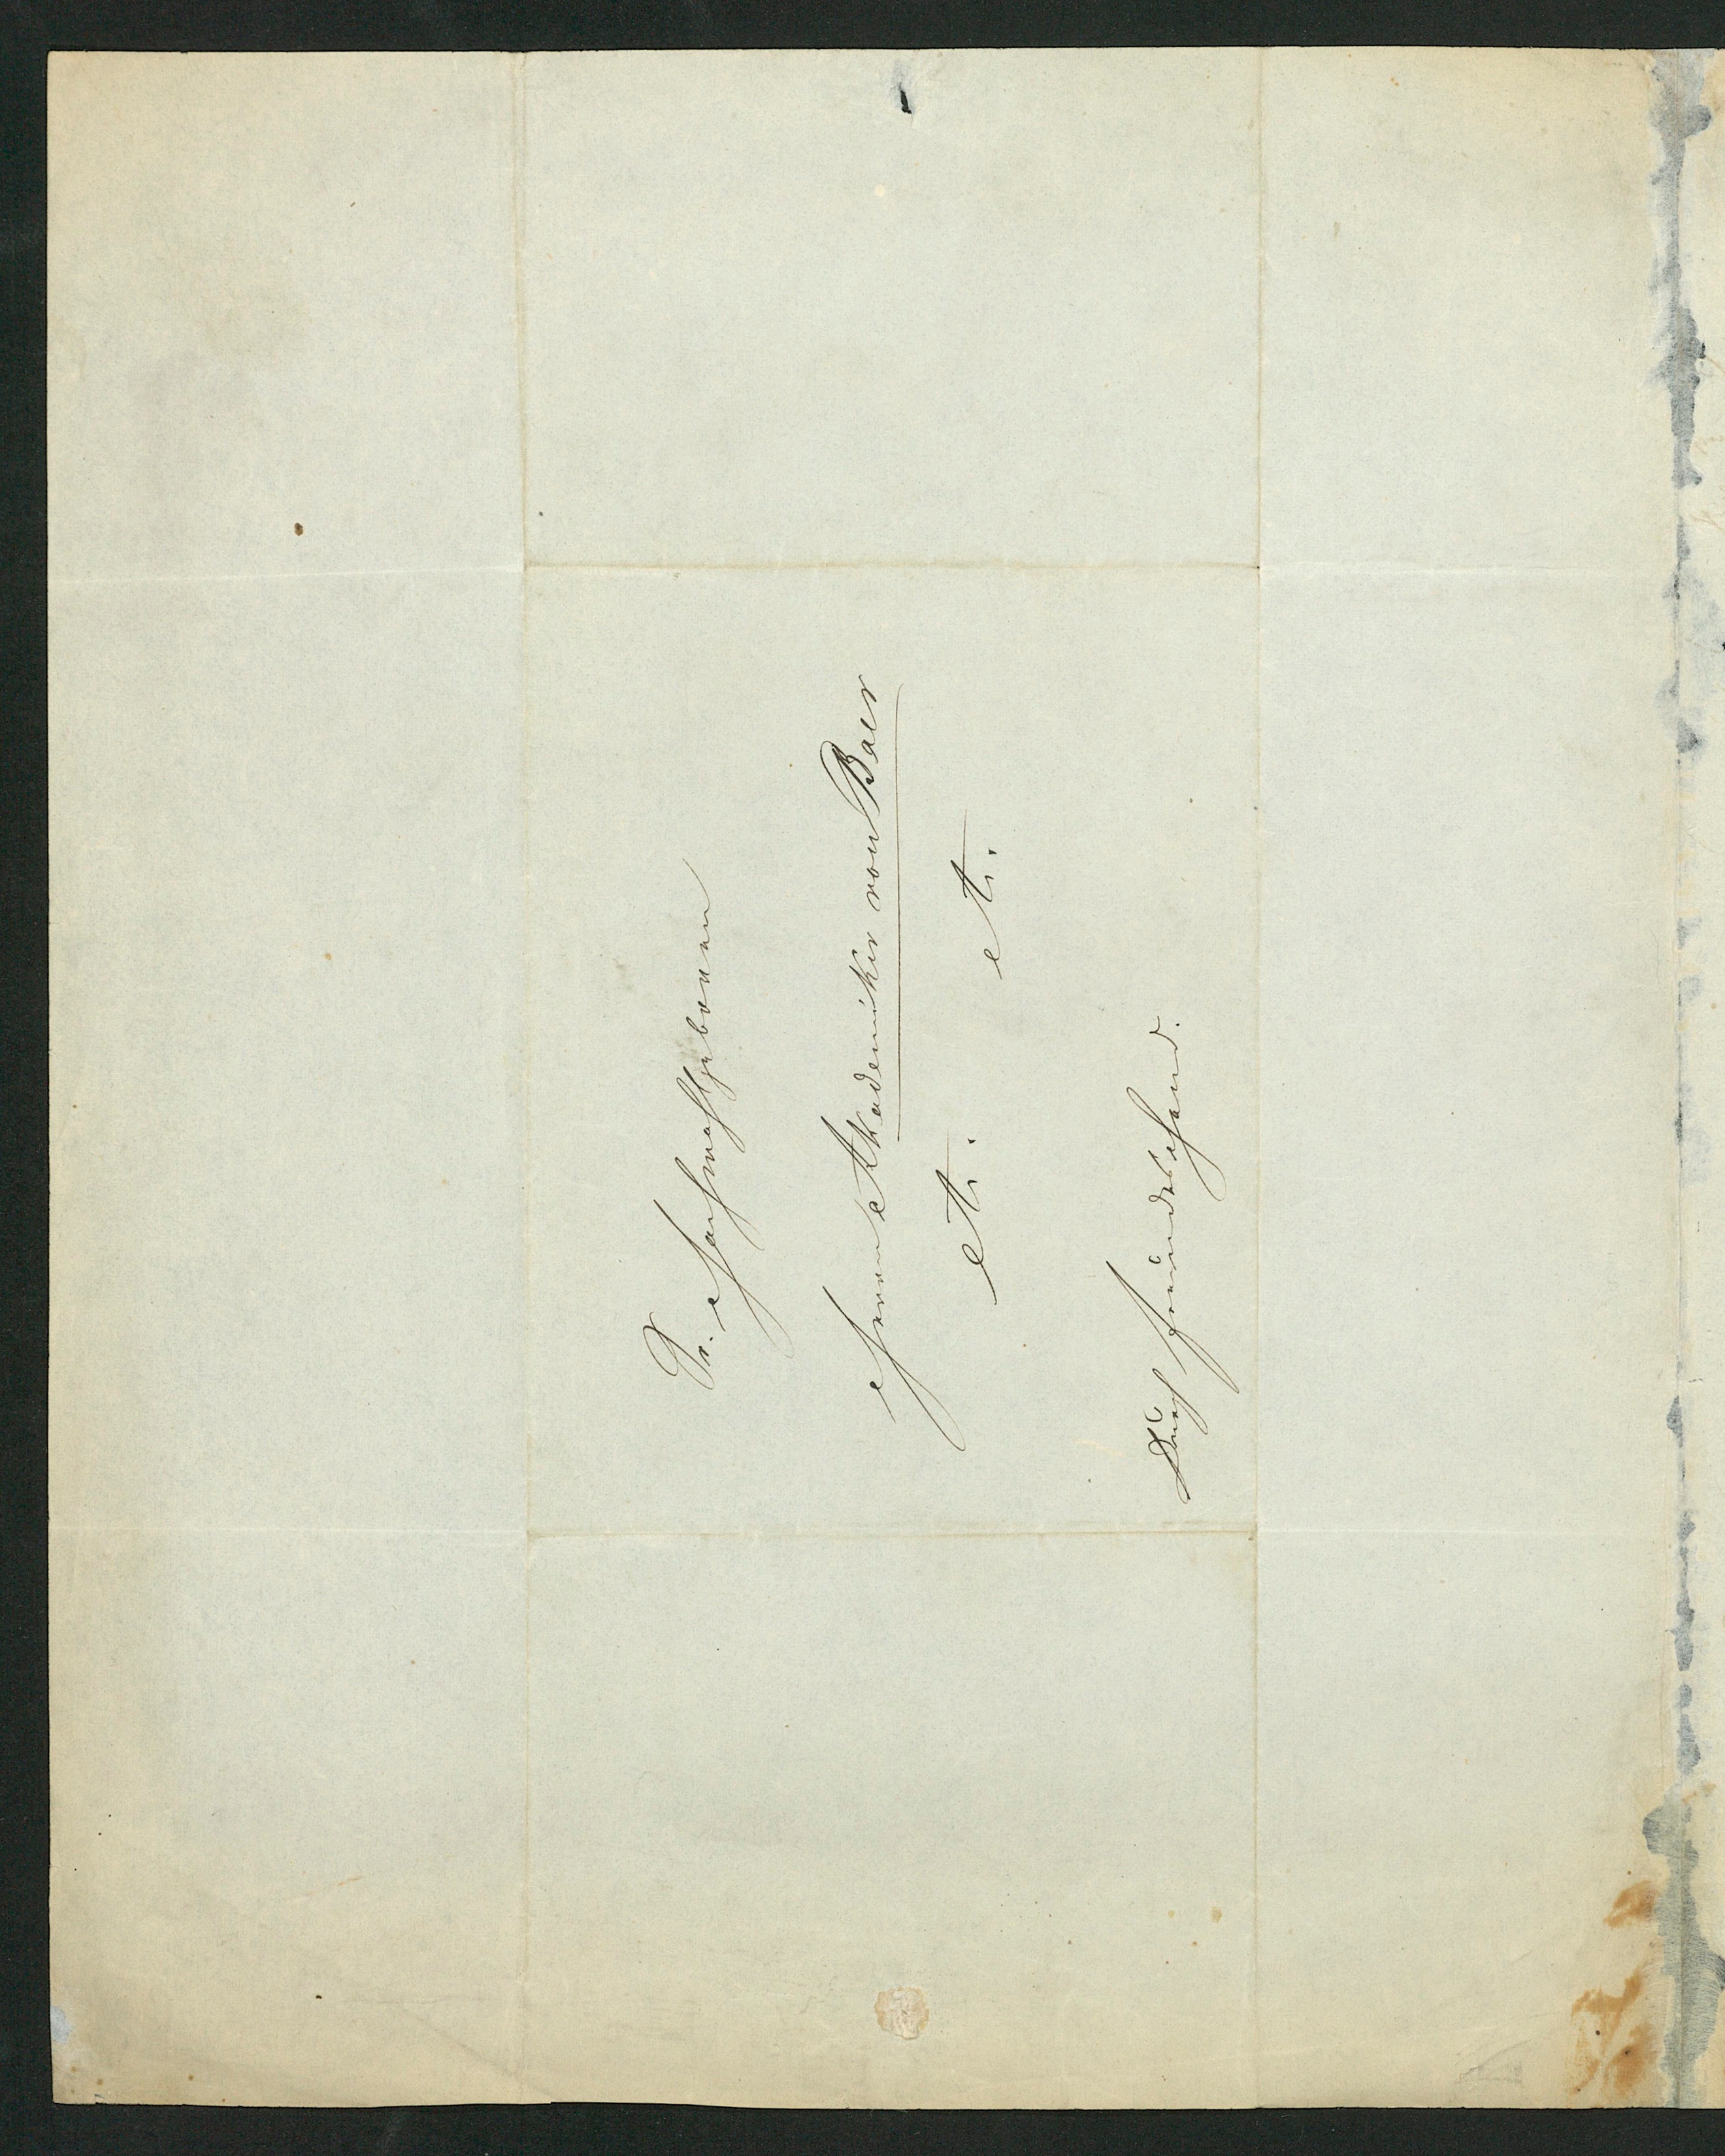 Sr. Hochwohlgeboren
Herrn Akademiker von Baer
etc. etc.
Durch Freundeshand.